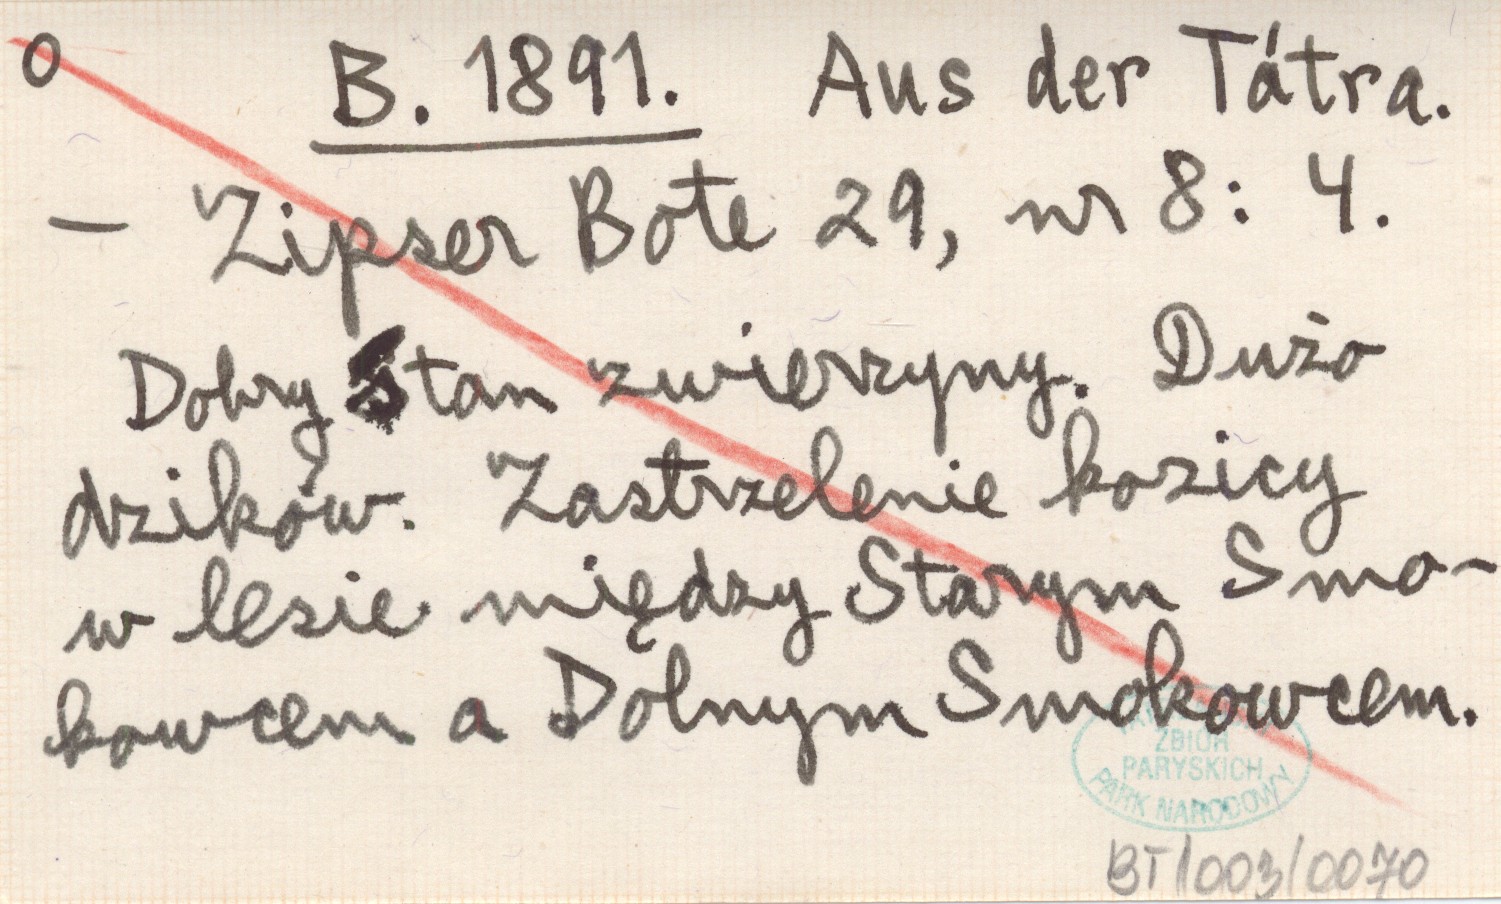 O B. 1891. Aus der Tátra.
— Zipser Bote 29, nr 8: 4.
Dobry stan zwierzyny. Dużo
dzików. Zastrzelenie kozicy
w lesie między Starym Smo-
kowcem a Dolnym Smokowcem.
ZBIÓR
PARYSKICH
PARK NARODOWY
BT/003/0070